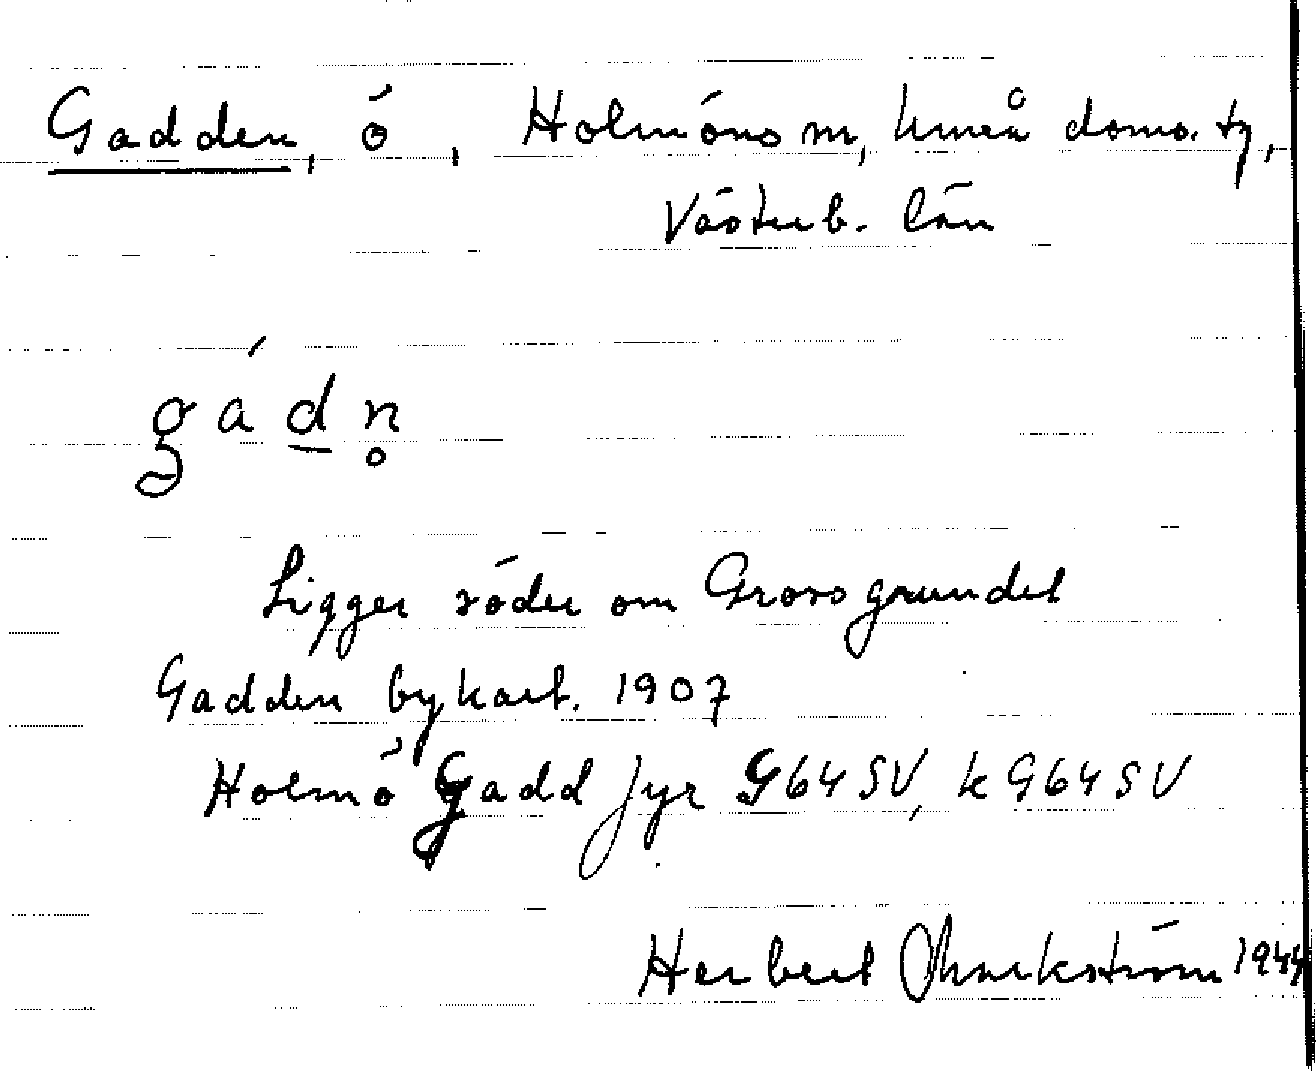 Gadden, ö, Holmöns sn, Umeå doms. tg,
Västerb. län
gádn̥
Ligger söder om Grossgrundet
Gadden bykart. 1907
Holmö Gadd fyr G64SV, k G64SV
Herbert 1944